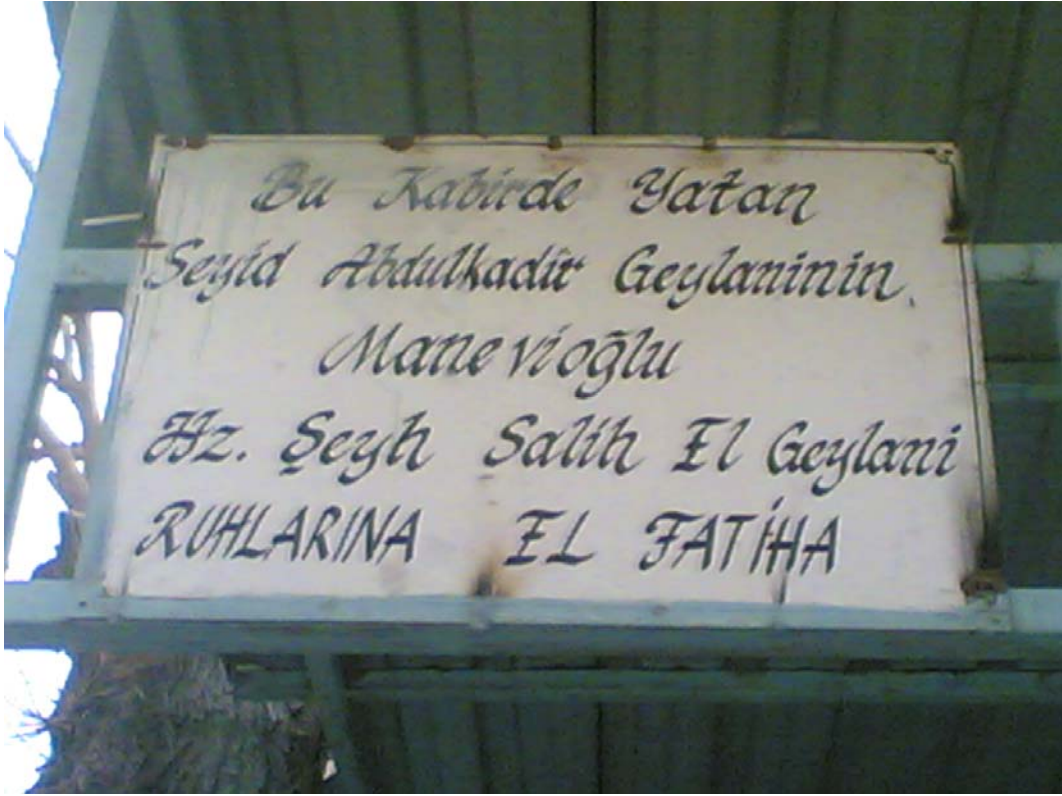 Bu Kabirde Yatan
Seyid Abdulkadir Geylaninin.
Manevioğlu
Hz. Şeyh Salih El Geylani
RUHLARINA EL FATİHA